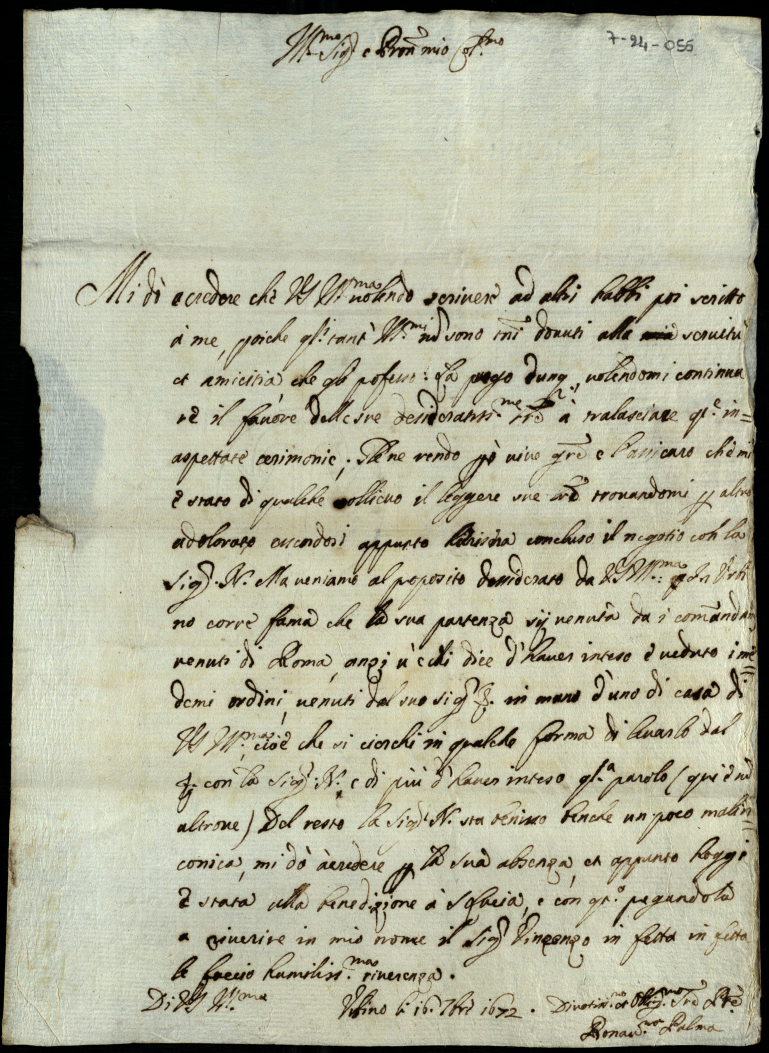 7-24-055
Ill.mo Sig.r e Pron mio Col.mo
Mi dò a credere che VS Ill.ma volendo scrivere ad altri habbi poi scritto
à me, poiche q.li tant' Ill.mi nō sono tito.i dovuti alla mia servitù
et amicitia che gli professo: La prego dunq, volendomi continua
re il favore delle sue desideratiss.me à tralasciare q.te in=
aspettate cerimonie; Le ne rendo però vive gre e l'assicuro che mi
è stato di qualche sollievo il leggere sue trovandomi p altro
adolorato essendosi appunto hiersera concluso il negotio con la
Sig.ra N. Ma veniamo al proposito desiderato da VS Ill.ma: In Urbi
no corre fama che la sua partenza sij venuta da i comandam
venuti di Roma, anzi v'è chi dice d'haver inteso è veduto i me
demi ordini, venuti dal suo sig.r in mano d'uno di casa di
VS Ill.ma, cioè che si cierchi in qualche forma di levarlo dal
con la Sig.ra N. e di più d'haver inteso q.sta parola (qui è nō
altrove) Del resto la Sig.ra N. sta benino benche un poco malin
conica, mi dò à credere p la sua absenza, et appunto hoggi
è stata alla benedizione à S. Lucia, e con q.to pregandola
a riverire in mio nome il Sig.r Vincenzo in fetta in fetta
le faccio humiliss.ma riverenza.
Di VS Ill.ma Urbino li 16. 7bre 1672. Divotiss.mo et Oblig.mo Sre
Bonav.ra Palma